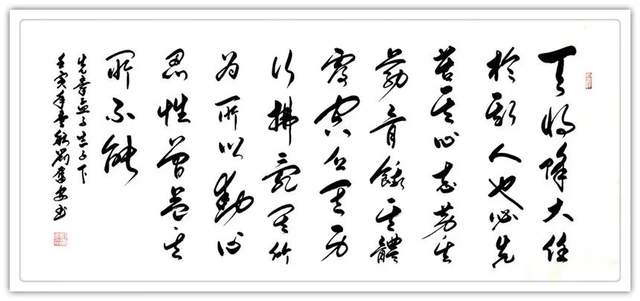 天将降大任
於斯人也必先
苦其心志劳其
筋骨餓其體
膚空乏其身
行拂乱其所
为所以動心
忍性曾益其
所不能
孟子告子下
壬寅年